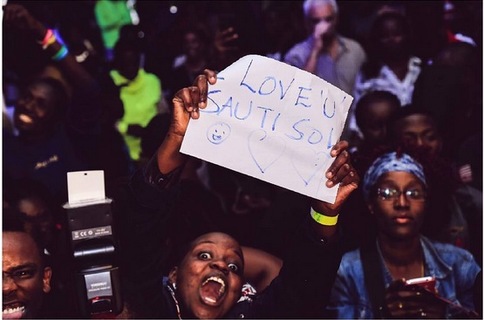 I LOVE 'U'
SAUTI SOL